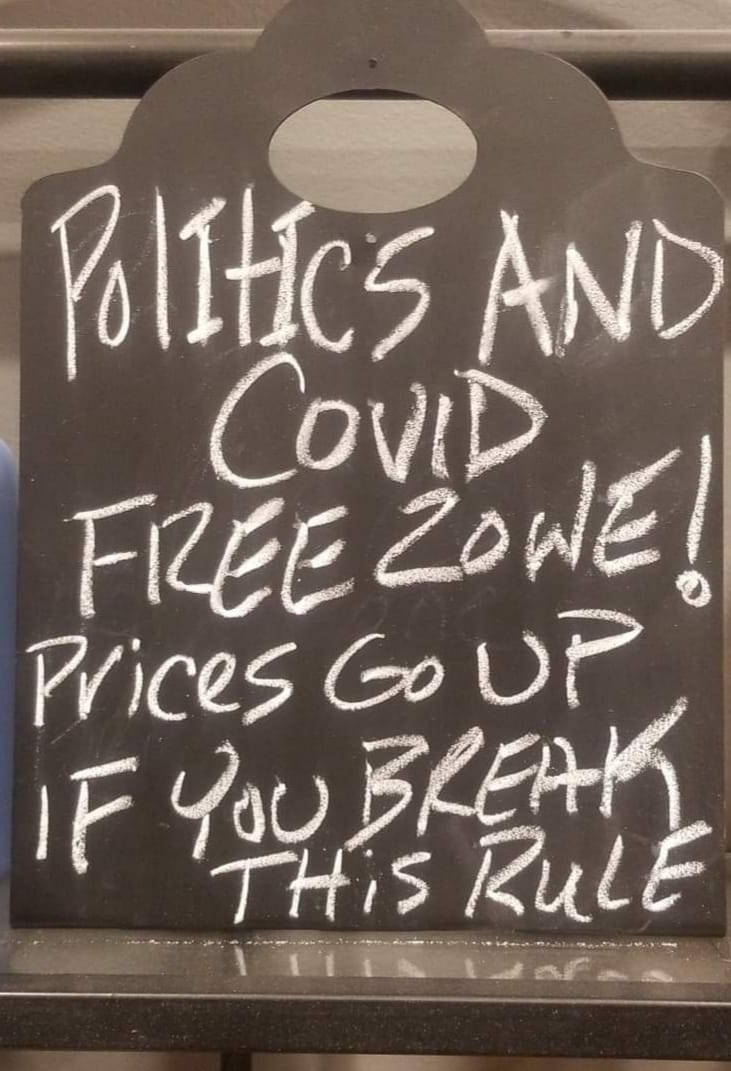 PolITICS AND
COVID
FREE ZONE!
Prices Go UP
IF YOU BREAK
THiS RuLE